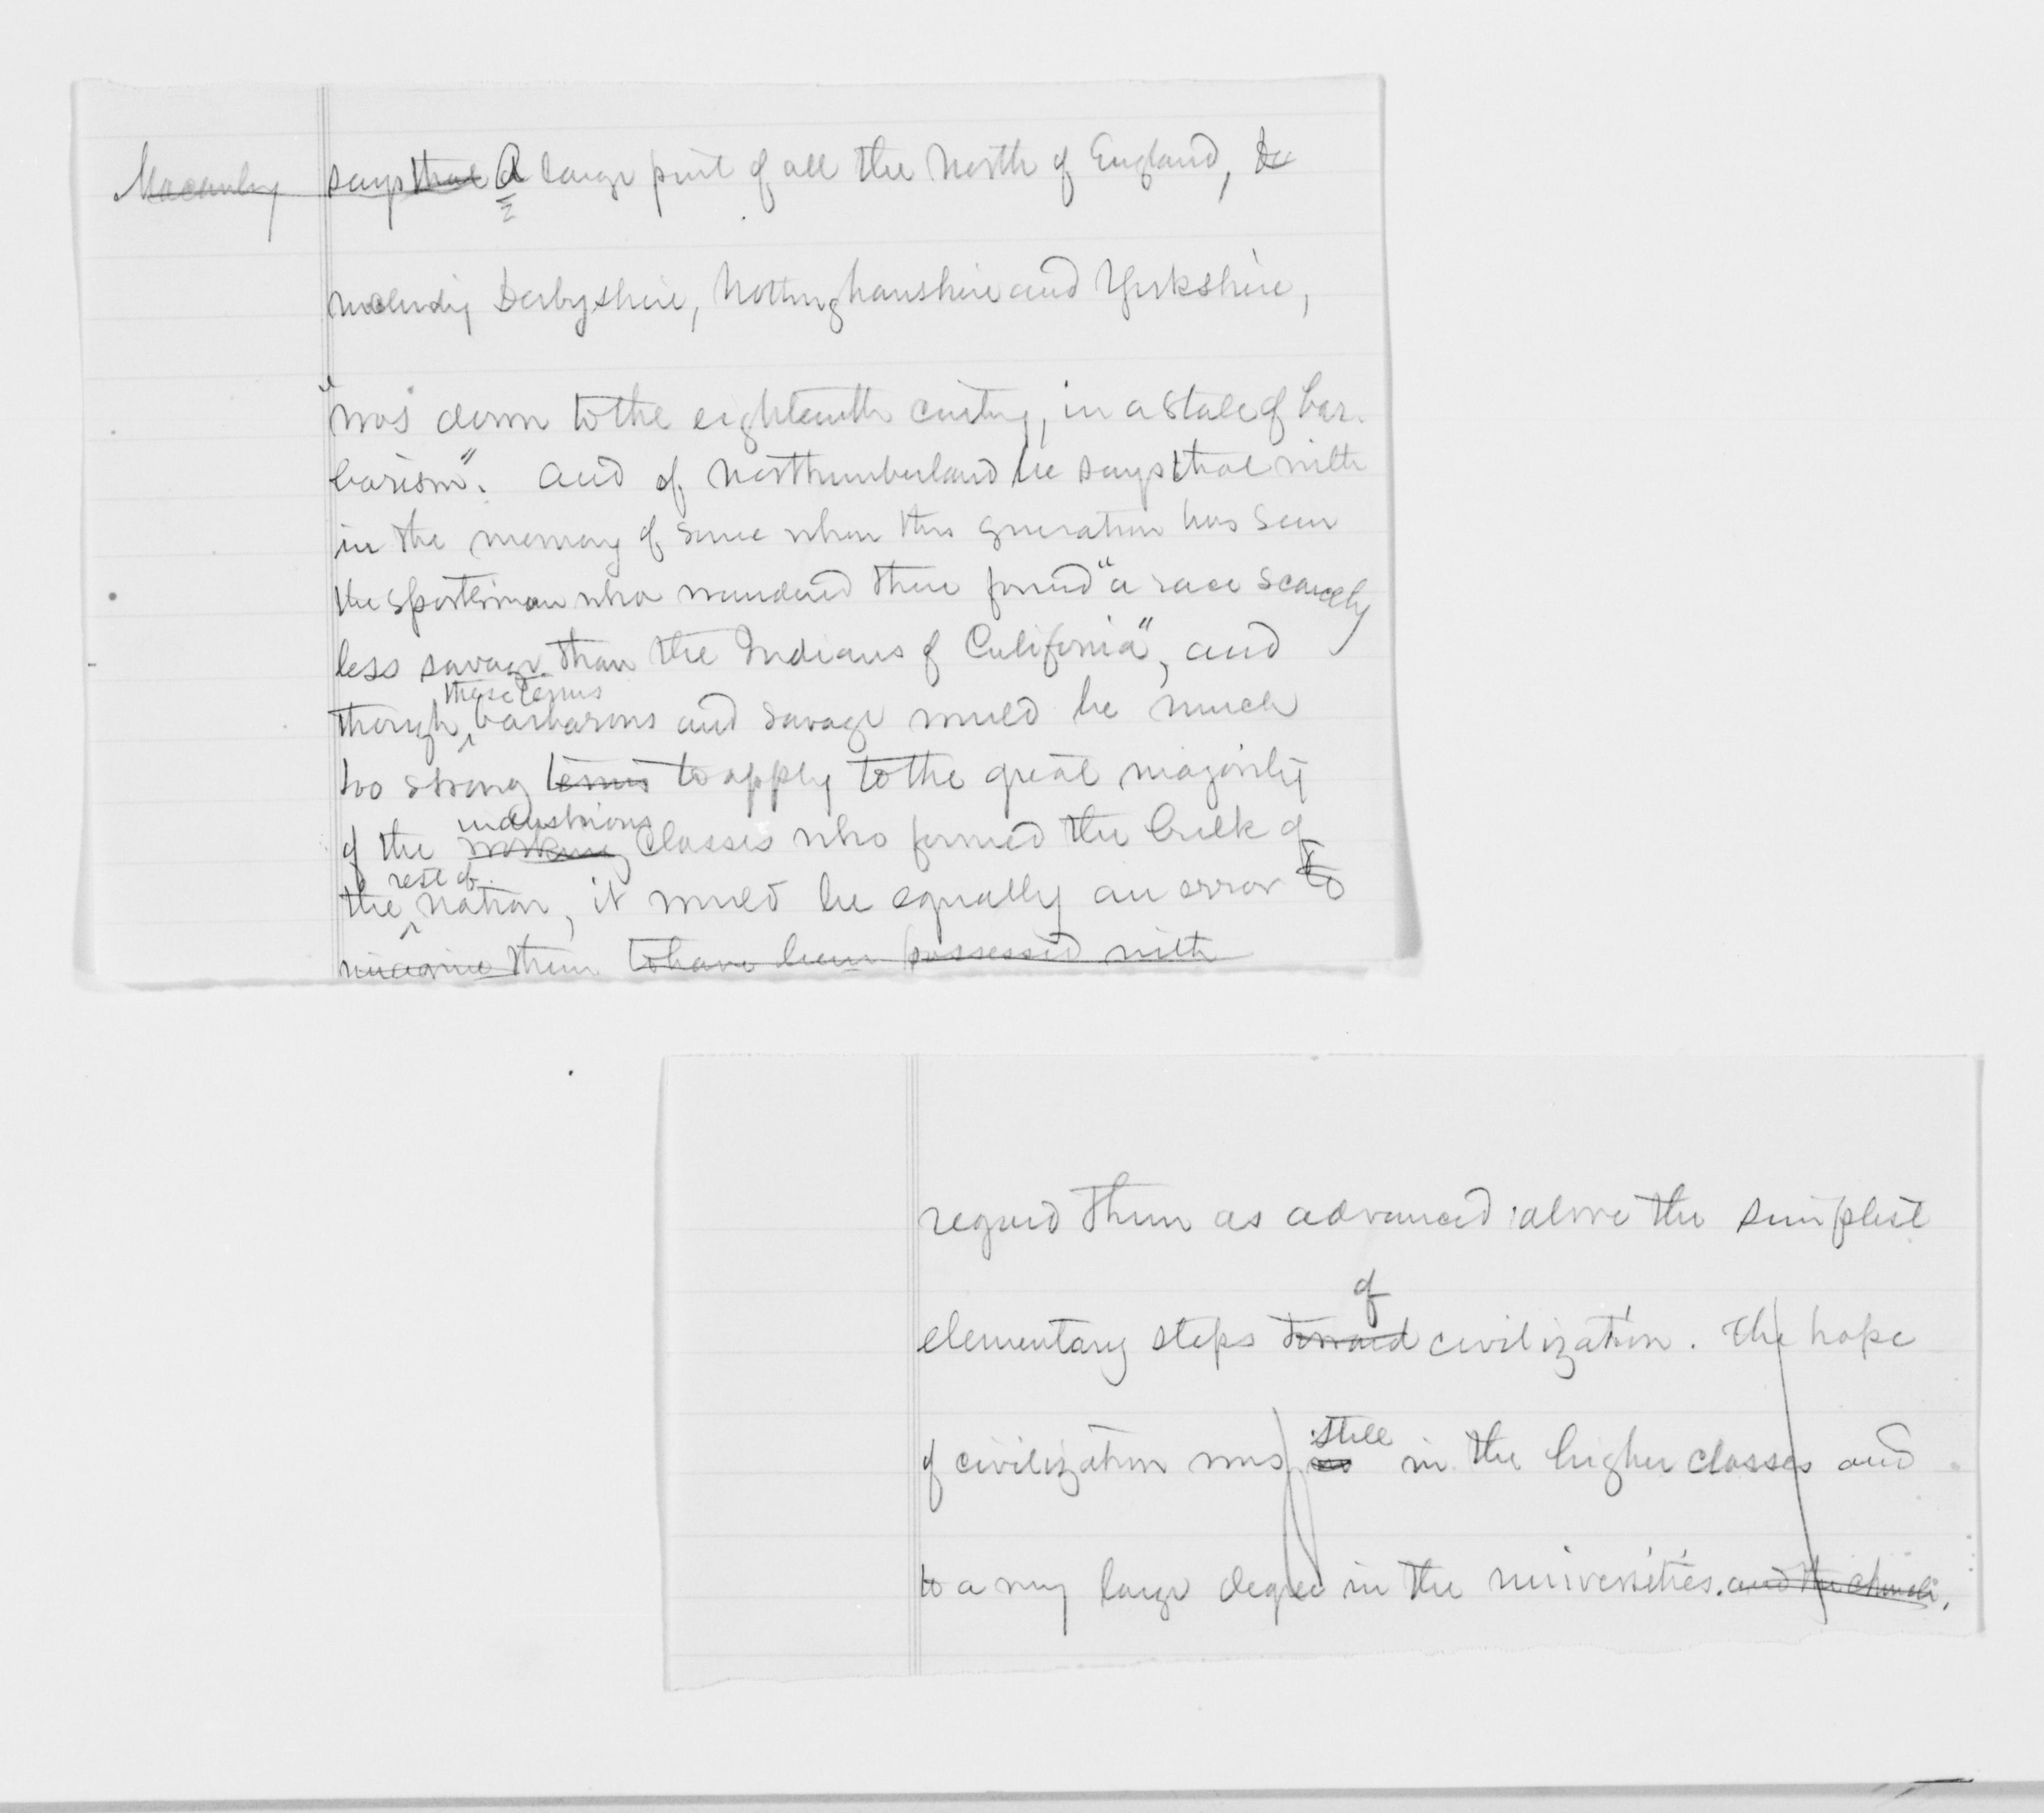 Macaulay says that A large part of all the North of England, De
including Derbyshire, Nottinghamshire and Yorkshire,
"was down to the eighteenth century, in a state of bar-
barism". And of Northumberland he says that with
in the memory of some whom this generation has seen
the sportsman who wandered there found "a race scarcely
less savage than the Indians of California", and
these terms
though barbarous and savage would be much
too strong terms to apply to the great majority
industrious
of the working classes who formed the bulk of
rest of
the nation, it would be equally an error to
imagine them to have been possessed with
regard them as advanced above the simplest
of
elementary steps toward civilization. The hope
still
of civilization was in the higher classes and
to a very large degree in the universities. and the church.